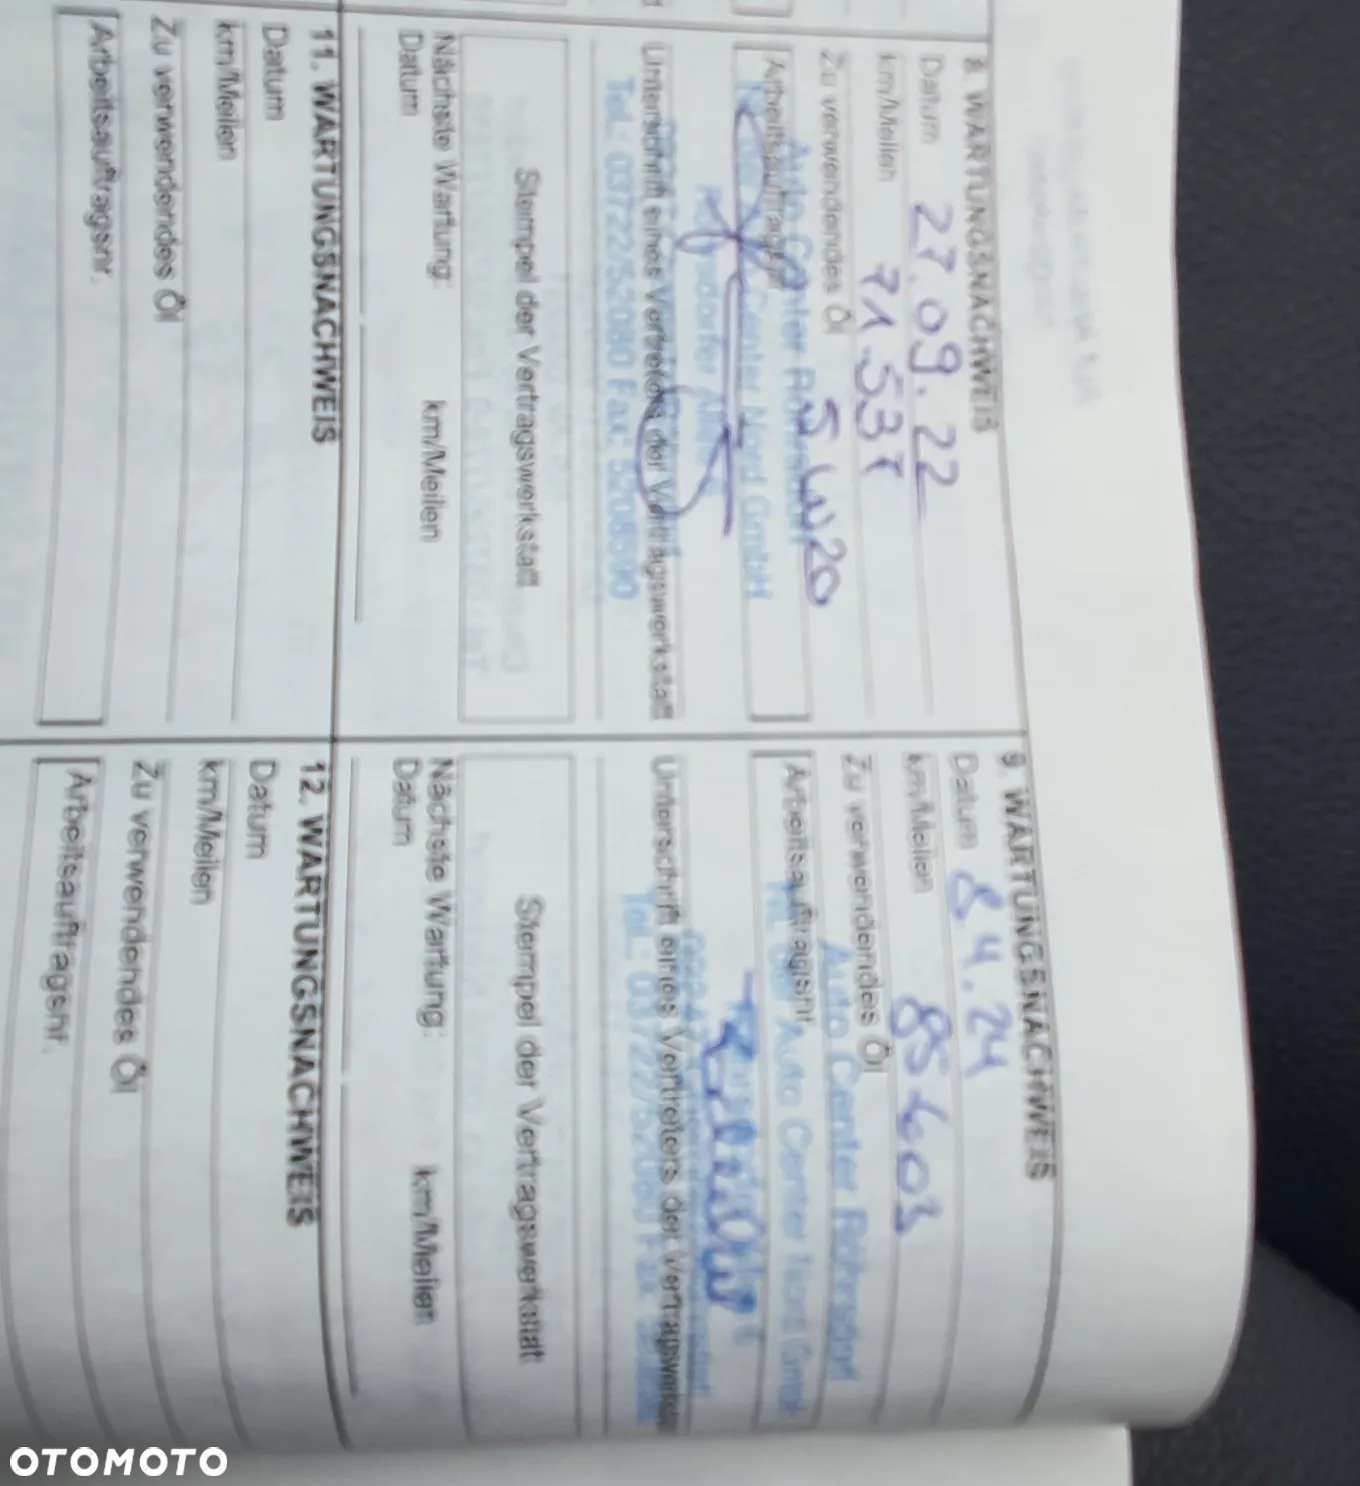 8. WARTUNGSNACHWEIS
Datum 27.09.22
km/Meilen 71.537
Zu verwendendes Öl 5W20
Auto Center Röhrsdorf
Arbeitsauftragsnr.
Center Nord GmbH
Unterschrift eines Vertreters der Vertragswerkstatt
Tel.: 03722/52080 Fax: 5208590
Stempel der Vertragswerkstatt
Nächste Wartung:
Datum km/Meilen
9. WARTUNGSNACHWEIS
Datum 8.4.24
km/Meilen 85603
Zu verwendendes Öl
Auto Center Röhrsdorf
Arbeitsauftragsnr.
Auto Center Nord GmbH
Unterschrift eines Vertreters der Vertragswerkstatt
Tel.: 03722/52080 Fax:
Stempel der Vertragswerkstatt
Nächste Wartung:
Datum km/Meilen
11. WARTUNGSNACHWEIS
Datum
km/Meilen
Zu verwendendes Öl
Arbeitsauftragsnr.
12. WARTUNGSNACHWEIS
Datum
km/Meilen
Zu verwendendes Öl
Arbeitsauftragsnr.
OTOMOTO